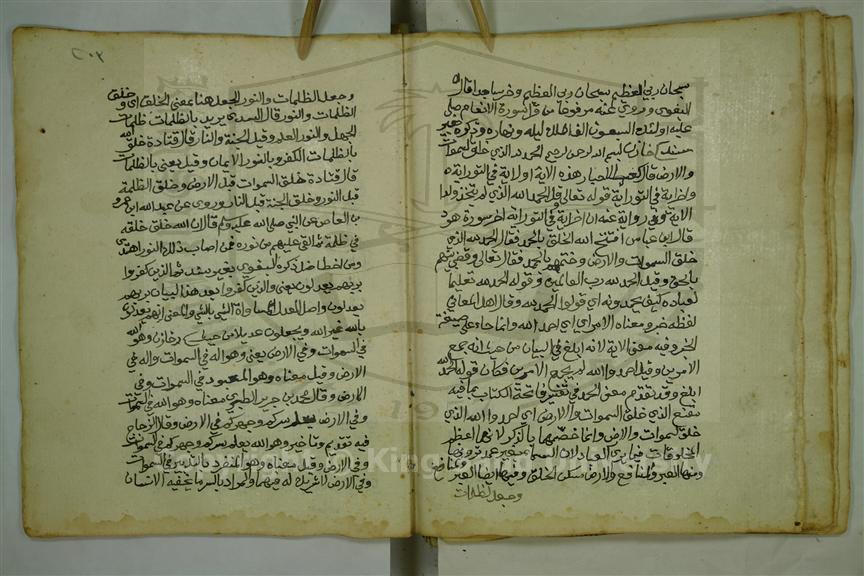 سبحان ربي العظيم سبحان ربي العظيم وخر ساجدا قال
البغوي وروي عنه مرفوعا من قرا سورة الانعام صلى
عليه اولئك السبعون الف ملك ليله ونهاره وذكره بغير
سند خازن بسم الله الرحمن الرحيم الحمد لله الذي خلق السموات
والارض قال كعب الاحبار هذه الاية اول اية في التوراة
واخر اية في التوراة قوله تعالى وقل الحمد لله الذي لم يتخذ ولدا
الاية وفي رواية عنه ان اخر اية في التوراة اخر سورة هود
قال ابن عباس افتتح الله الخلق بالحمد فقال الحمد لله الذي
خلق السموات والارض وختمهم بالحمد فقال تعالى وقضي بينهم
بالحق وقيل الحمد لله رب العالمين وقوله الحمد لله تعليما
لعباده كيف يحمدونه اي قولوا الحمد لله وقال اهل المعاني
لفظه خبر ومعناه الامر اي احمدوا الله وانما جاء على صيغة
الخبر وفيه معنى الامر لانه ابلغ في البيان من حيث انه جمع
الامرين ولو قيل احمدوا الله لم يجمع الامرين فكان قوله الحمد لله
ابلغ وقد تقدم معنى الحمد في تفسير فاتحة الكتاب بما فيه
مقنع الذي خلق السموات والارض اي احمدوا الله الذي
خلق السموات والارض وانما خصهما بالذكر لانهما اعظم
المخلوقات فيما يرى العباد لان السماء بغير عمد ترونها
وفيها العبر والمنافع والارض مسكن الخلق وفيها ايضا العبر والمنافع
وجعل الظلمات
٢٠٢
وجعل الظلمات والنور الجعل هنا بمعنى الخلق اي وخلق
الظلمات والنور قال السدي يريد بالظلمات ظلمات
الجهل والنور العلم وقيل الجنة والنار قال قتادة خلق الله
بالظلمات الكفر وبالنور الايمان وقيل يعني بالظلمات
قال قتادة خلق السموات قبل الارض وخلق الظلمة
قبل النور وخلق الجنة قبل النار وروي عن عبد الله ابن عمرو
بن العاص عن النبي صلى الله عليه وسلم قال ان الله خلق خلقه
في ظلمة ثم القى عليهم من نوره فمن اصاب ذلك النور اهتدى
ومن اخطا ضل ذكره البغوي بغير سند ثم الذين كفروا
بربهم يعدلون يعني والذين كفروا بعد هذا البيان بربهم
يعدلون واصل العدل مساواة الشي بالشي والمعنى انهم يعدلون
بالله غير الله ويجعلون له عديلا من خازن وهو الله
في السموات وفي الارض يعني وهو اله في السموات واله في
الارض وقيل معناه وهو المعبود في السموات وفي
الارض وقال محمد بن جرير الطبري معناه وهو الله في السموات
وفي الارض يعلم سركم وجهركم في الارض وقال الزجاج
فيه تقديم وتاخير وهو الله يعلم سركم وجهركم في السموات
وفي الارض وقيل معناه وهو المنفرد بالتدبير في السموات
وفي الارض لا شريك له فيهما والمراد بالسر ما يخفيه الانسان
© King Saud University